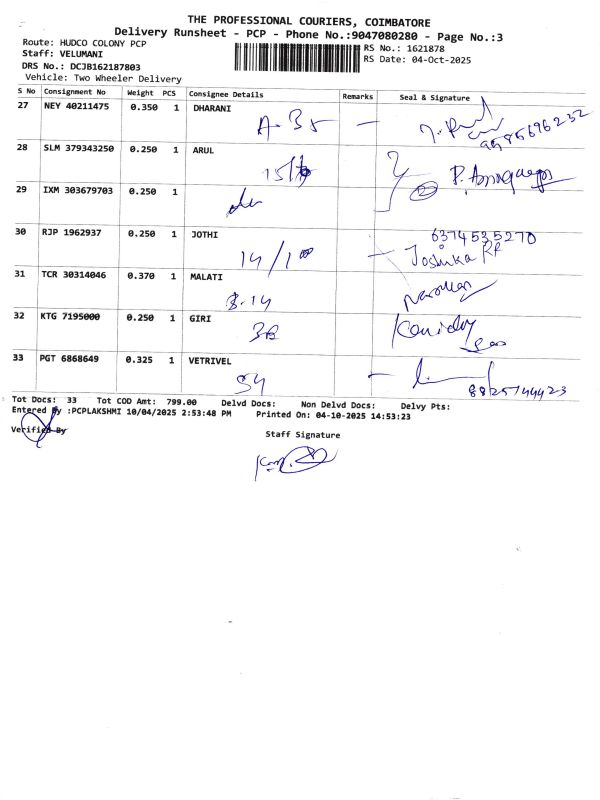 THE PROFESSIONAL COURIERS, COIMBATORE
Delivery Runsheet - PCP - Phone No.:9047080280 - Page No.:3
Route: HUDCO COLONY PCP
RS No.: 1621878
Staff: VELUMANI
RS Date: 04-Oct-2025
DRS No.: DCJB162187803
Vehicle: Two Wheeler Delivery
S No Consignment No Weight PCS Consignee Details Remarks Seal & Signature
27 NEY 40211475 0.350 1 DHARANI
A-35
28 SLM 379343250 0.250 1 ARUL
29 IXM 303679703 0.250 1
30 RJP 1962937 0.250 1 JOTHI 6374535270
14/1
31 TCR 30314046 0.370 1 MALATI
8-14
32 KTG 7195000 0.250 1 GIRI
3B
33 PGT 6868649 0.325 1 VETRIVEL
54 8825744423
Tot Docs: 33 Tot COD Amt: 799.00 Delvd Docs: Non Delvd Docs: Delvy Pts:
Entered By :PCPLAKSHMI 10/04/2025 2:53:48 PM Printed On: 04-10-2025 14:53:23
Verified By
Staff Signature